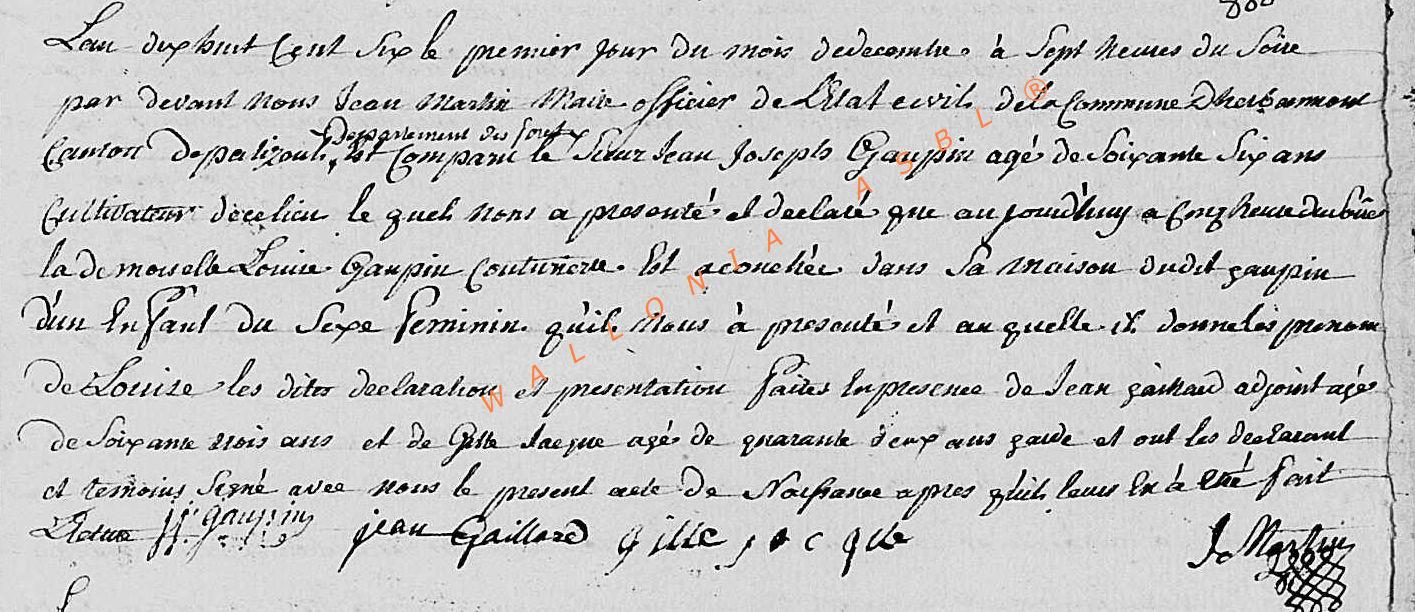 L'an dix huit Cent Six le premier jour du mois dedecembre à Sept heures du Soire
par devant nous Jean Martin Maire officier de L'Etat civil dela Commune Dherbeumont
Departement des forets
Canton depalizeul, Est Comparu le Sieur Jean Joseph Gaupin agé de Soixante Six ans
Cultivateur decelieu le quel nous a presenté et declaré que aujourd'huy a Cinq heure du Soire
la demoiselle Louise Gaupin Couturierre Est acouchée dans Sa maison dudit gaupin
d'un Enfant du Sexe feminin quil nous à presenté et au quelle il donne les prenom
de Louise les dites declaration et presentation faites En presence de Jean gaillard adjoint agé
de Soixante trois ans et de Gille Jacque agé de quarante deux ans garde et ont les declarant
et temoins Signé avec nous le present acte de Naissance apres quil leurs En à Eté fait
Lecture JJ. Gaupin jean Gaillard gille jacque J Martin
WALLONIA ASBL ®